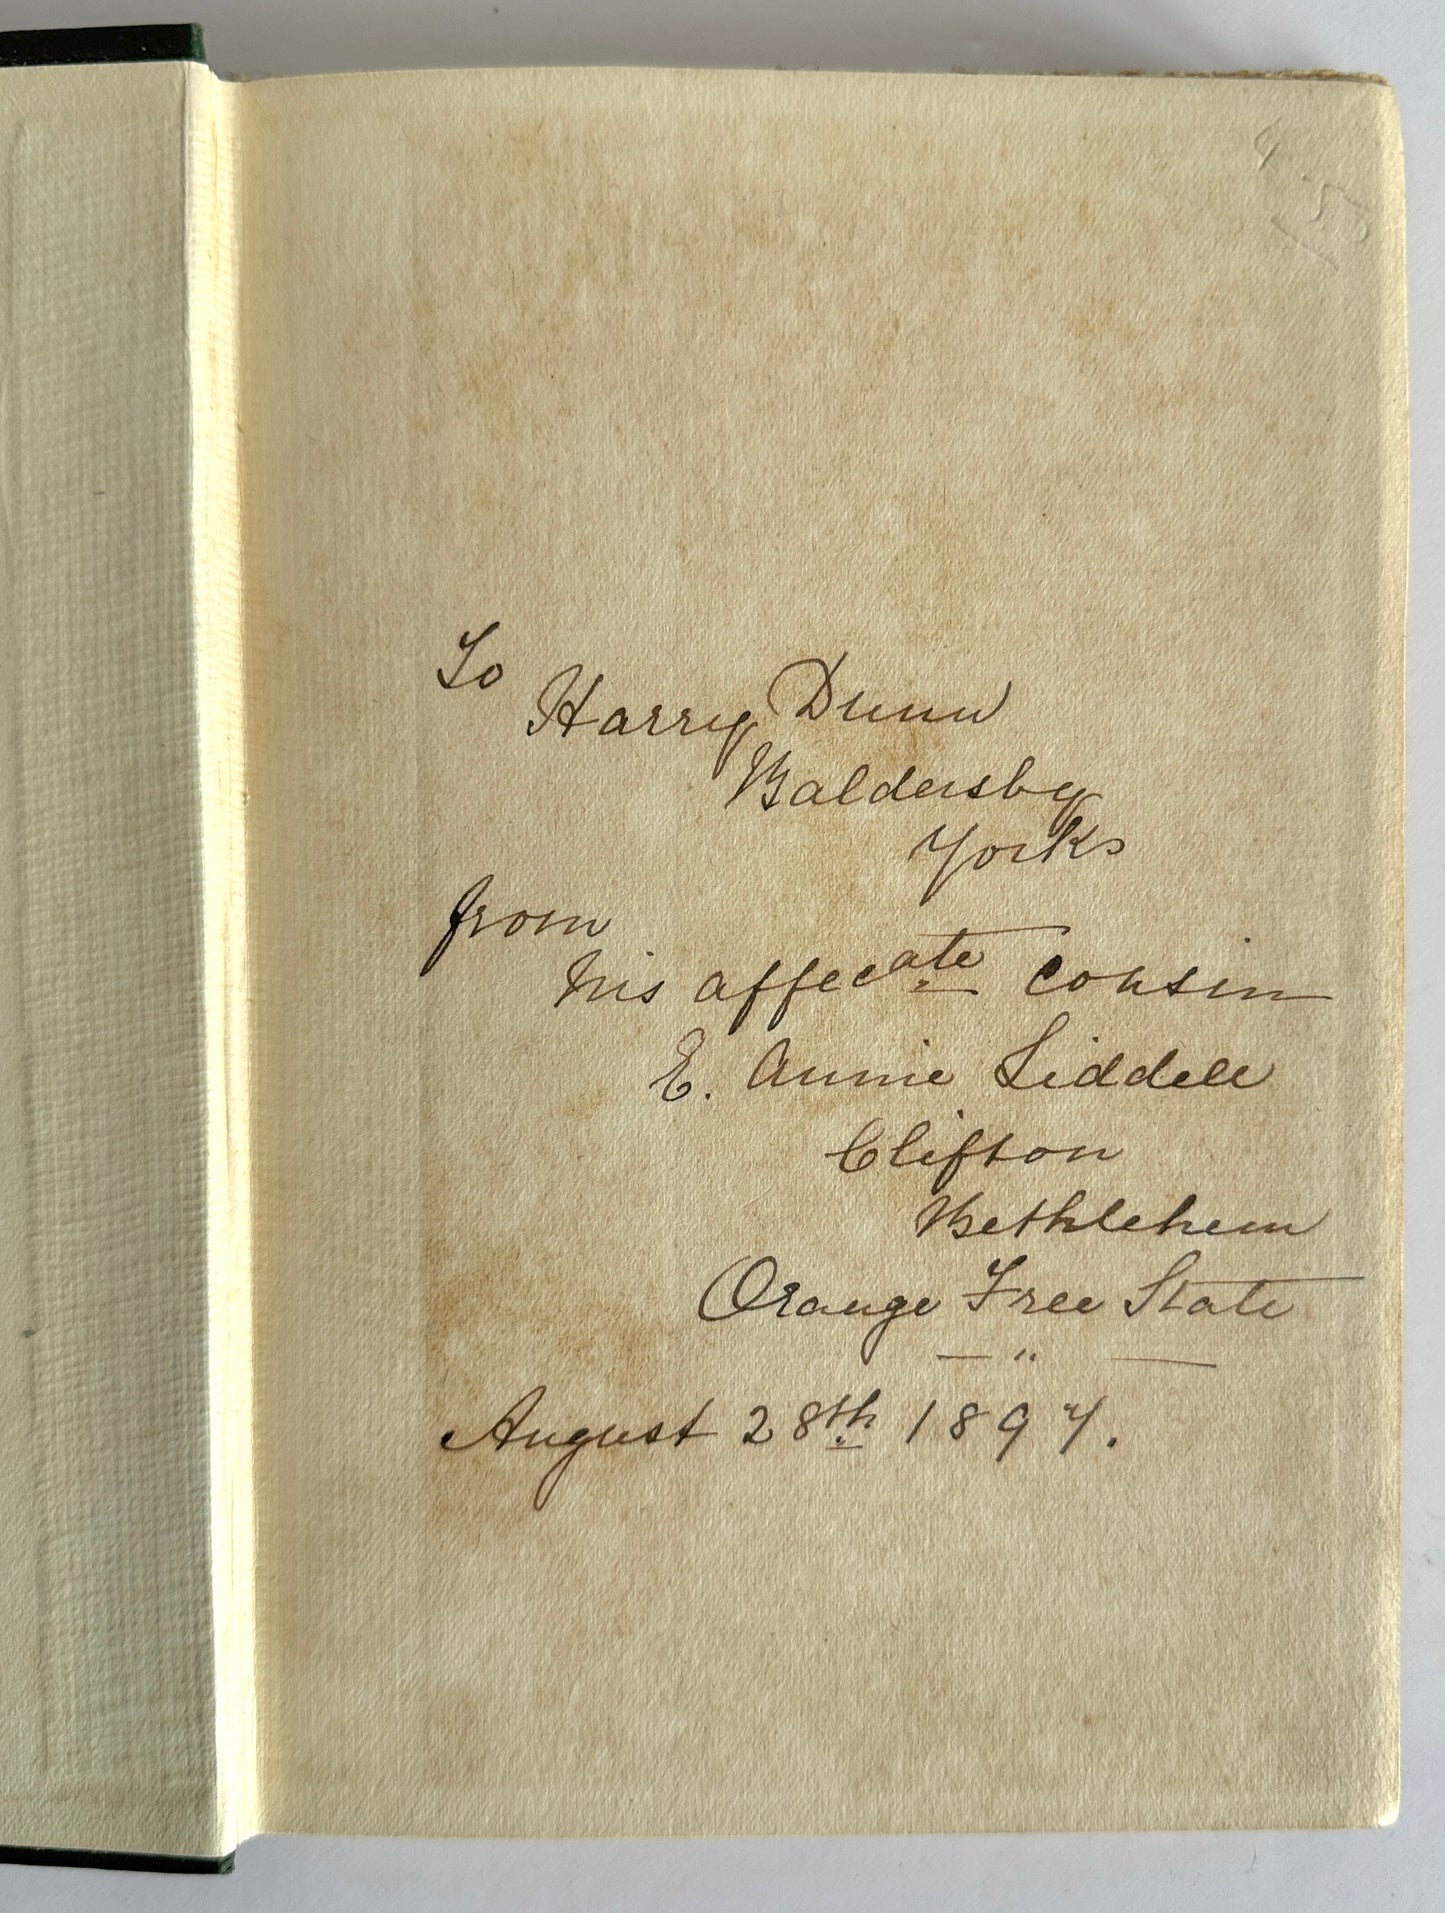 To
Harry Dunn
Baldersby
Yorks
from
his affecate cousin
E. Annie Liddell
Clifton
Bethlehem
Orange Free State
— " —
August 28th 1897.